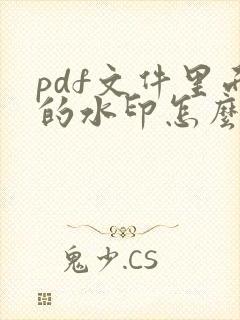 pdf文件里
的水印怎麼
鬼少.CS